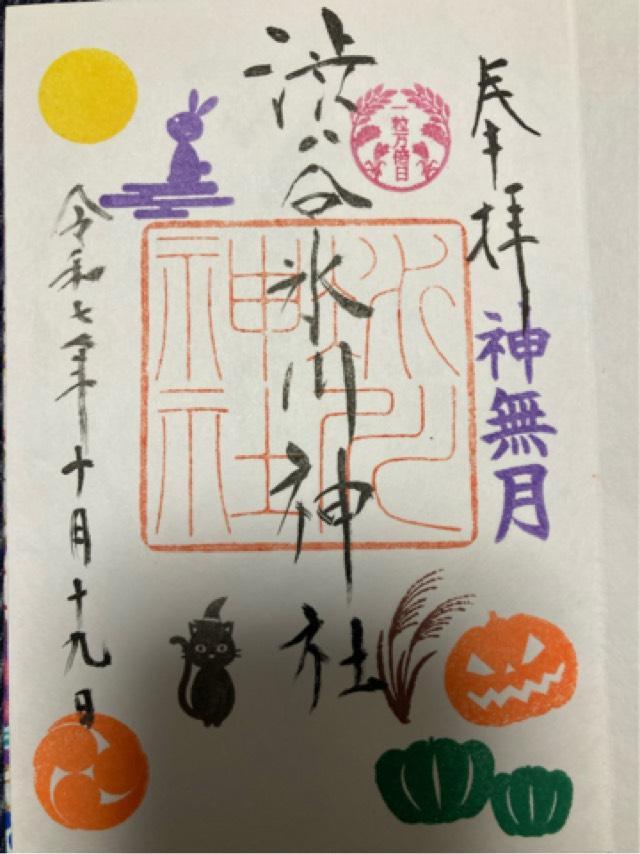 奉拝
神無月
一粒万倍日
渋谷氷川神社
氷川
神社
令和七年十月十九日